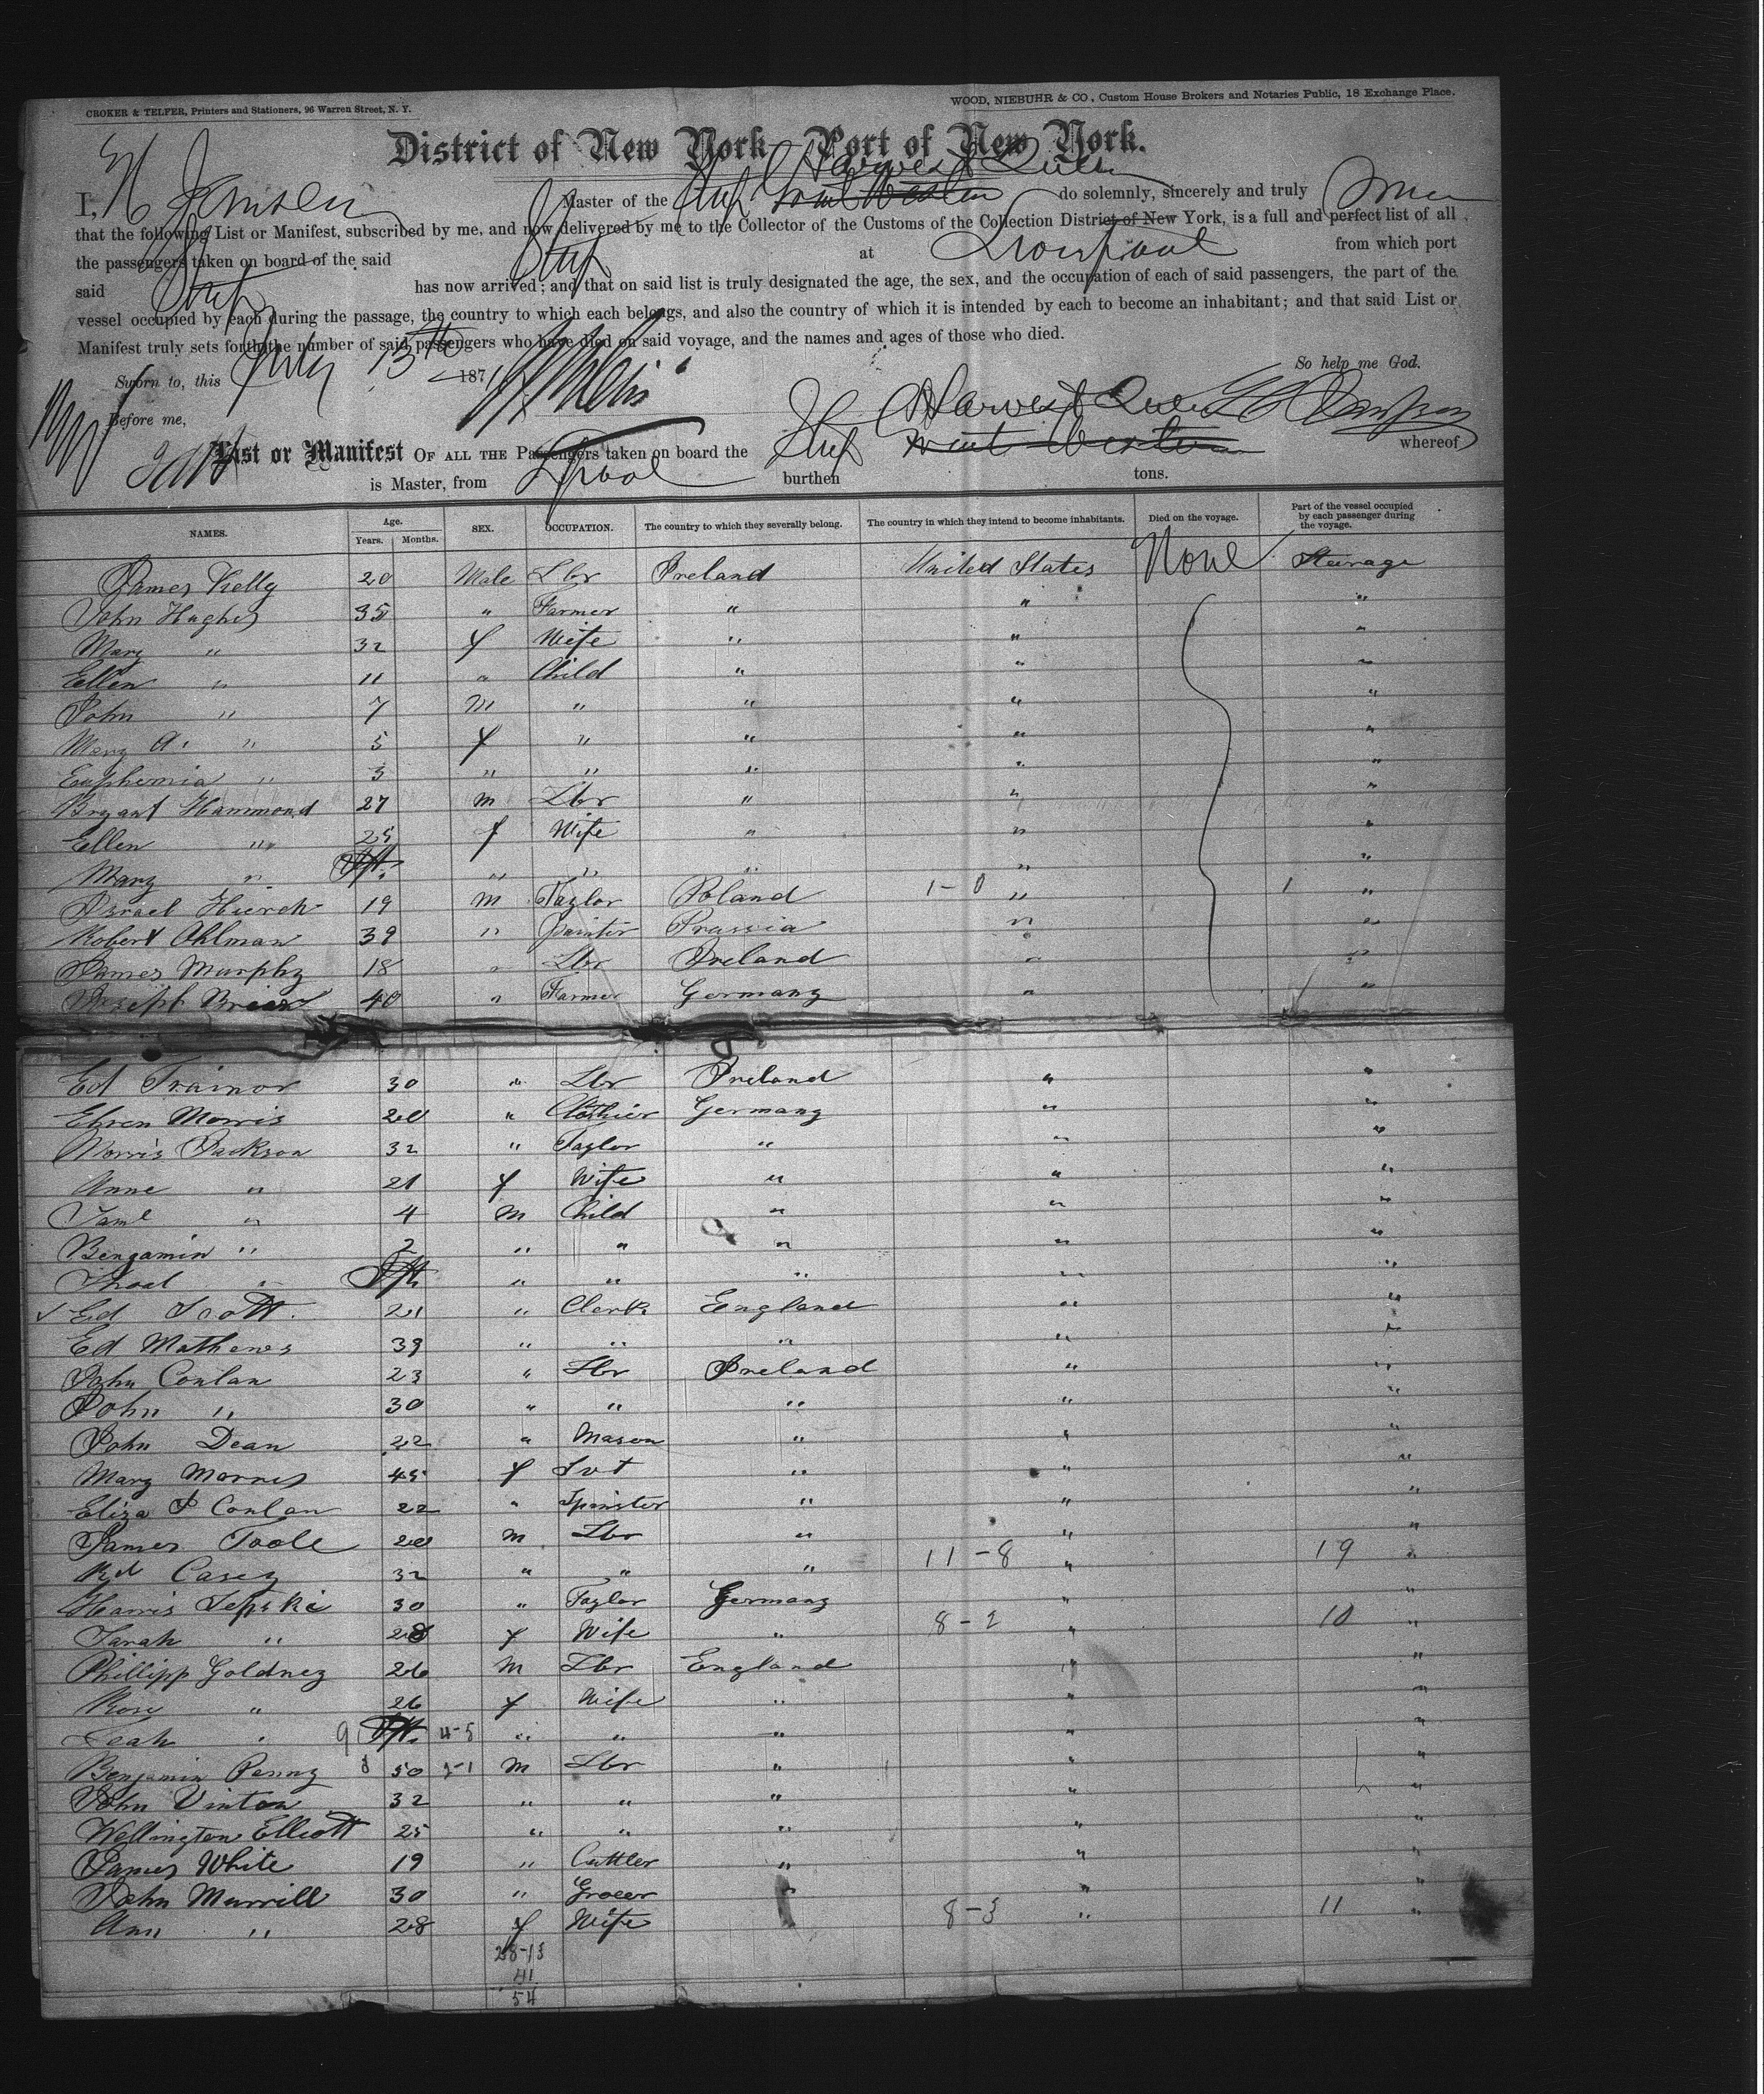 CROKER & TELFER, Printers and Stationers, 96 Warren Street, N. Y.
WOOD, NIEBUHR & CO., Custom House Brokers and Notaries Public, 18 Exchange Place.
District of New York Port of New York.
Harvest Queen
I, Master of the Ship Great Western do solemnly, sincerely and truly swear
that the following List or Manifest, subscribed by me, and now delivered by me to the Collector of the Customs of the Collection District of New York, is a full and perfect list of all
the passengers taken on board of the said Ship at Liverpool from which port
said Ship has now arrived; and that on said list is truly designated the age, the sex, and the occupation of each of said passengers, the part of the
vessel occupied by each during the passage, the country to which each belongs, and also the country of which it is intended by each to become an inhabitant; and that said List or
Manifest truly sets forth the number of said passengers who have died on said voyage, and the names and ages of those who died.
So help me God.
Sworn to, this July 13th 187
Before me,
Harvest Queen
List or Manifest OF ALL THE Passengers taken on board the Ship Great Western whereof
is Master, from L'pool burthen tons.
NAMES. Age. Years. Months. SEX. OCCUPATION. The country to which they severally belong. The country in which they intend to become inhabitants. Died on the voyage. Part of the vessel occupied by each passenger during the voyage.
James Kelly 20 Male Lbr Ireland United States None Steerage
John Hughes 35 " Farmer " " "
Mary " 32 f Wife " " "
Ellen " 11 " Child " " "
John " 7 M " " " "
Mary A. " 5 f " " " "
Euphemia " 3 " " " " "
Bryant Hammond 27 m Lbr " " "
Ellen " 25 f Wife " " "
Mary " Inft. " " " " "
Israel Hirsch 19 m Taylor Poland 1-0 " 1 "
Robert Ohlman 39 " Painter Prussia " "
James Murphy 18 " Lbr Ireland " "
Joseph 40 " Farmer Germany " "
Ed Trainor 30 " Lbr Ireland " "
Ehren Morris 20 " Clothier Germany " "
Morris Jackson 32 " Taylor " " "
Anne " 21 f Wife " " "
Saml " 4 m Child " " "
Bengamin " 2 " " " " "
" Inft " " " " "
Ed Scott. 21 " Clerk England " "
Ed Mathews 39 " " " " "
John Conlan 23 " Lbr Ireland " "
John " 30 " " " " "
John Dean 22 " Mason " " "
Mary Morris 45 f Svt " " "
Eliza J Conlan 22 " Spinster " " "
James Toole 20 m Lbr " " "
Rd Casey 32 " " " 11-8 " 19 "
Harris Lepski 30 " Taylor Germany " "
Sarah " 28 f Wife " 8-2 " 10 "
Phillipp Goldney 26 m Lbr England " "
Rosy " 26 f Wife " " "
Leah " 9 Inft. 4-5 " " " " "
Benjamin Penny 8 50 2-1 m Lbr " " "
John Vinton 32 " " " " "
Wellington Elliott 25 " " " " "
James White 19 " Cuttler " " "
John Murrill 30 " Grocer " " "
Ann " 28 f Wife 8-3 " 11 "
28-13
41
54